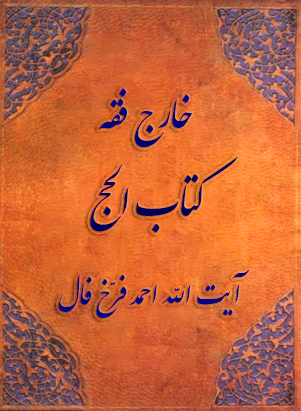 خارج فقه
کتاب الحج
آیت الله احمد فرّخ فال